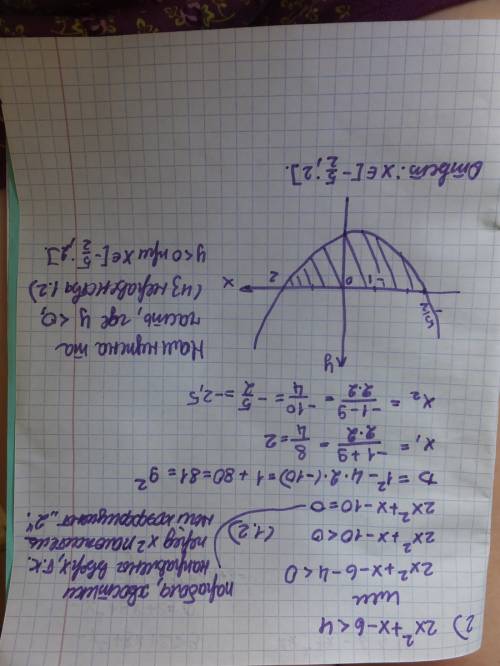 2) 2x²+x-6<4
или
2x²+x-6-4<0
2x²+x-10<0 (1.2)
2x²+x-10=0
парабола, хвостики
направлена вверх, т.к.
перед x² положитель
ный коэффициент „2“.
D=1²-4·2·(-10)=1+80=81=9²
x₁=(-1+9)/(2·2)=8/4=2
x₂=(-1-9)/(2·2)=-10/4=-5/2=-2,5
Нам нужна та
часть, где y<0,
(из неравенства 1.2)
y<0 при x∈[-5/2; 2].
y
-5/2 -1 0 2 x
Ответ: x∈[-5/2; 2].